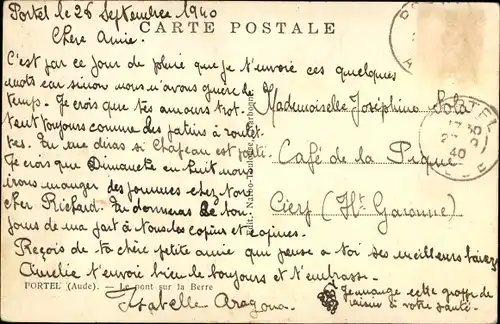 Portel le 26 Septembre 1940
CARTE POSTALE
Chère Amie.
C'est par ce jour de pluie que je t'envoie ces quelques
mots car sinon nous n'avons guère de
temps. Je crois que tes amours trot-
tent toujours comme des patins à roulet-
tes. Tu me diras si Chateau est parti.
Je crois que Dimanche en huit nous
irons manger des pommes chez
cher Richard. Tu donneras le bon-
jours de ma part à tous les copins et copines.
Reçois de ta chère petite amie que pense a toi ses meilleurs baisers
Aurélie t'envoie bien le bonjours et t'embrasse.
Isabelle Aragona.
Je mange cette grappe de
raisin à votre santé.
Mademoiselle Joséphine Sola
Café de la Pique
Cierp (Hte Garonne)
PORTEL (Aude). — Le pont sur la Berre
PORTEL
40